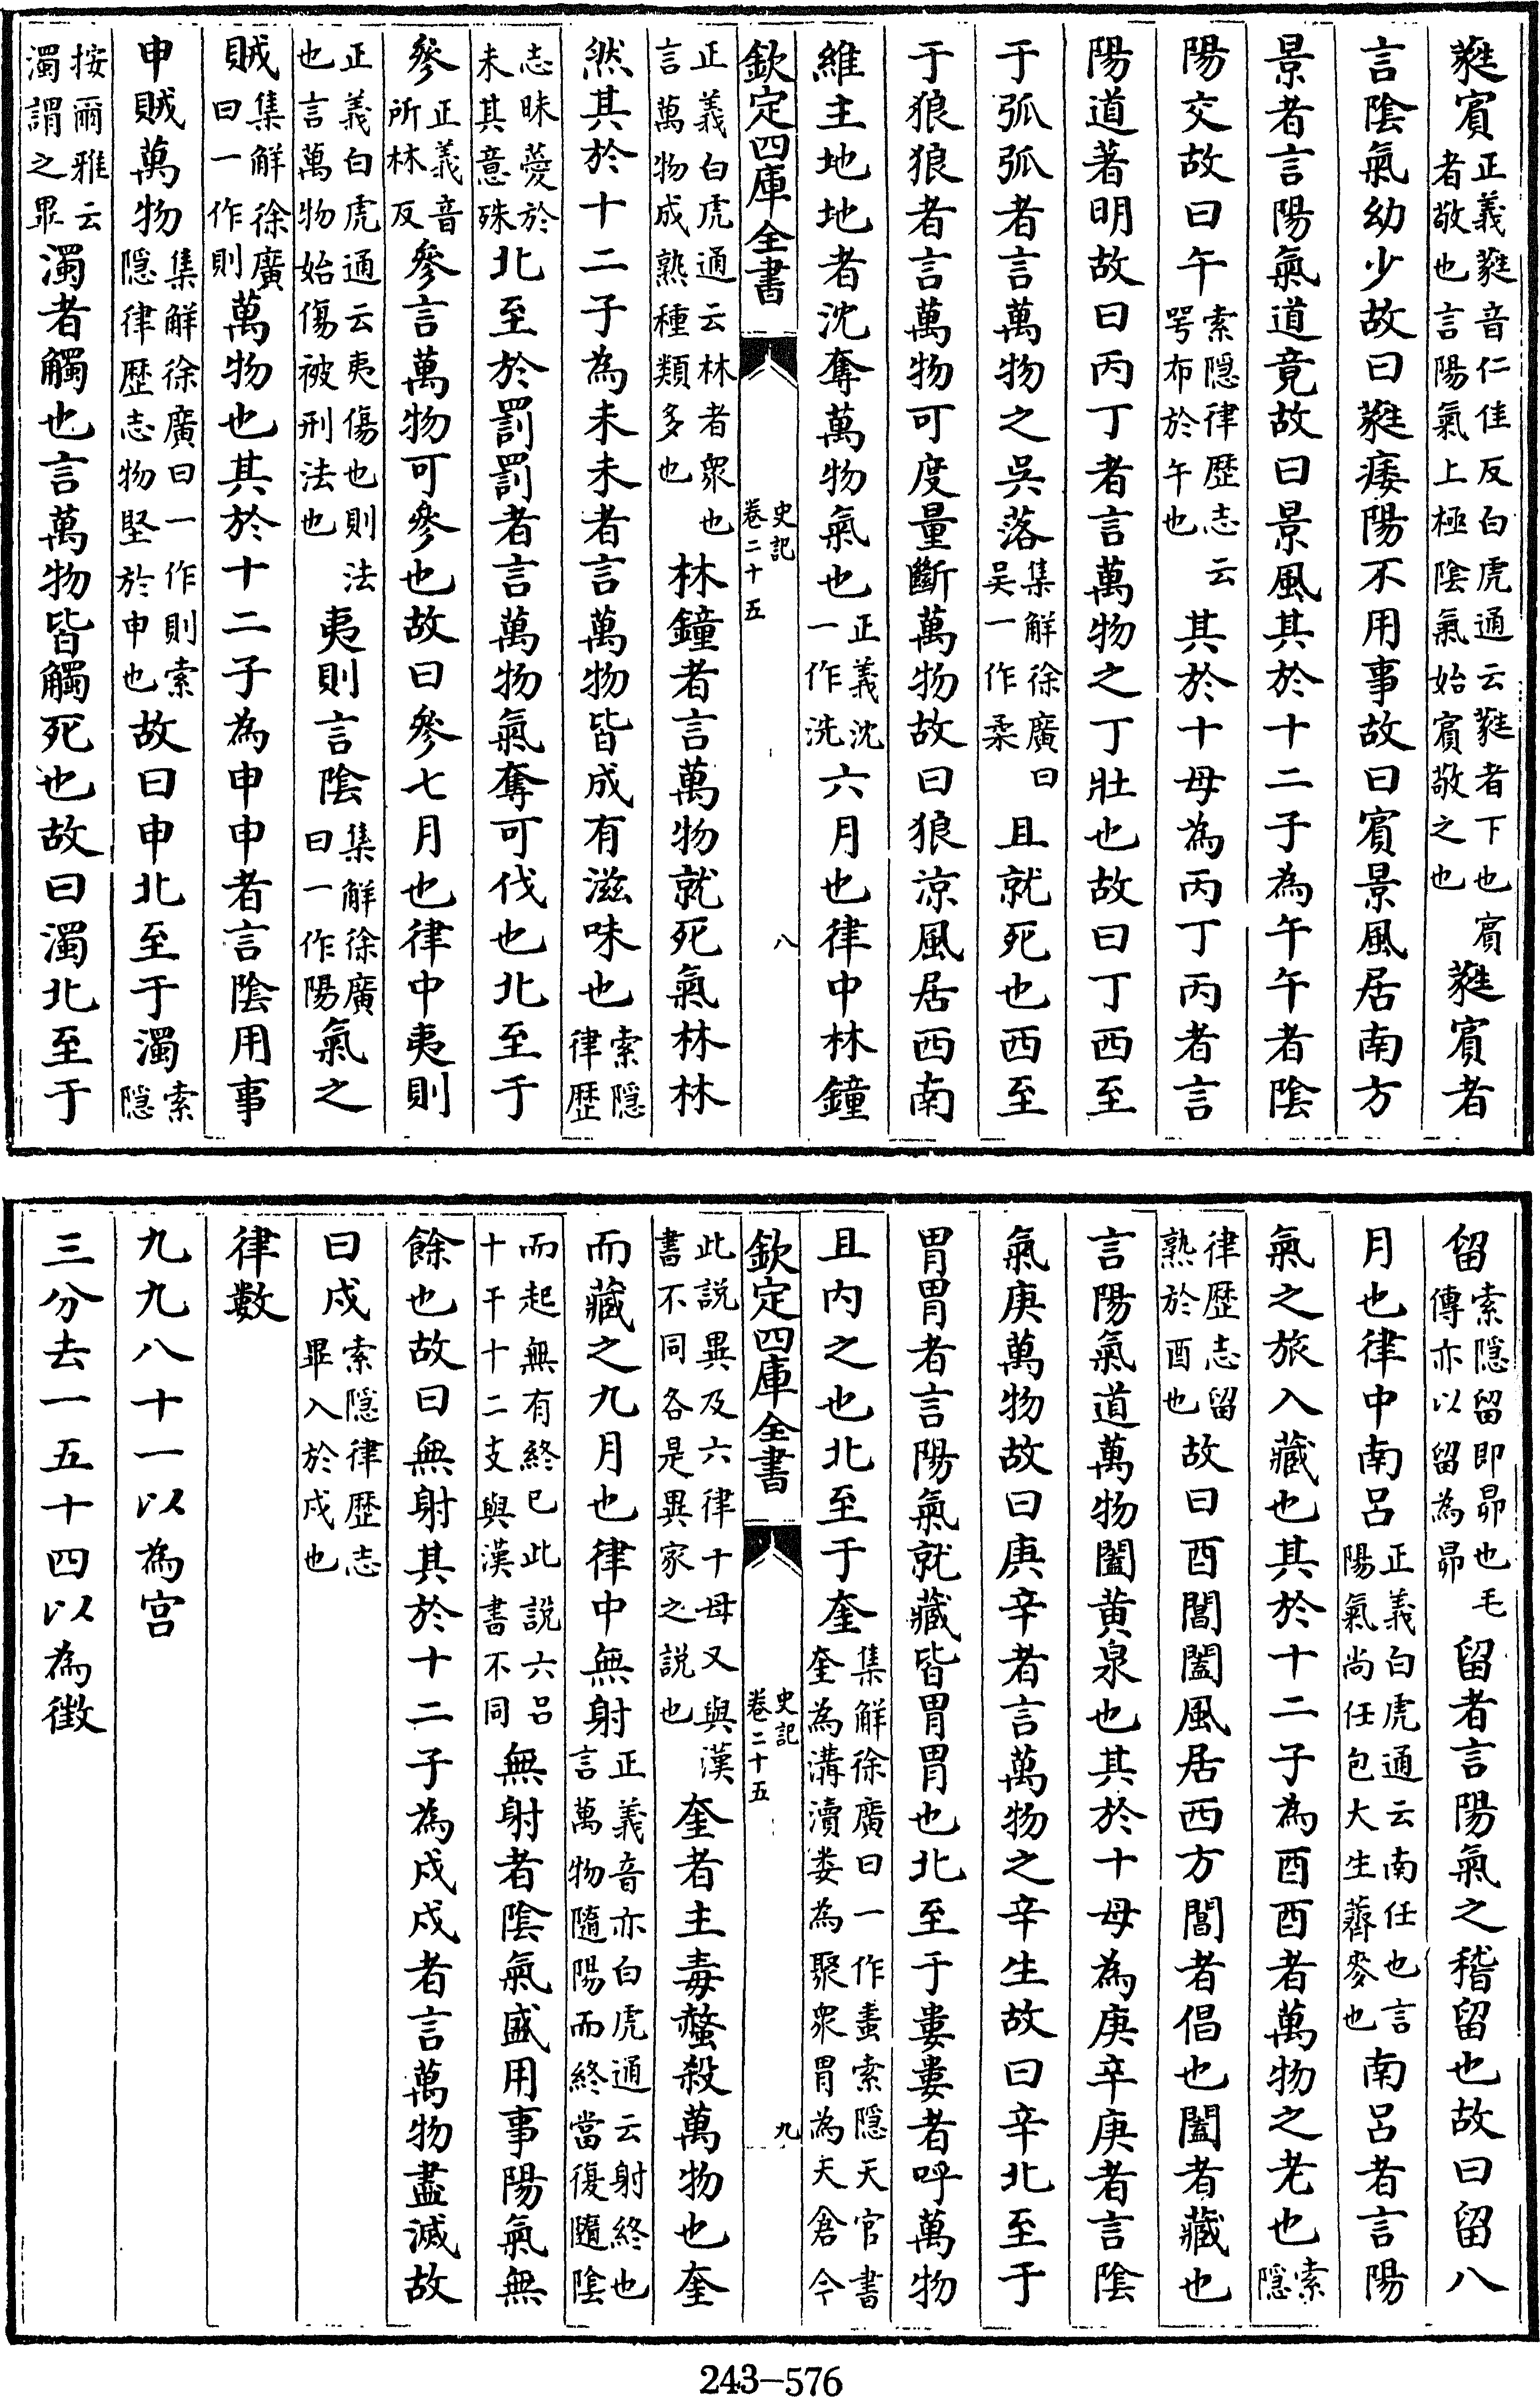 蕤賓正義蕤音仁佳反白虎通云蕤者下也賓者敬也言陽氣上極陰氣始賓敬之也蕤賓者
言陰氣幼少故曰蕤痿陽不用事故曰賓景風居南方
景者言陽氣道竟故曰景風其於十二子為午午者陰
陽交故曰午索隱律歷志云咢布於午也其於十母為丙丁丙者言
陽道著明故曰丙丁者言萬物之丁壯也故曰丁西至
于弧弧者言萬物之吳落集解徐廣曰吳一作柔且就死也西至
于狼狼者言萬物可度量斷萬物故曰狼涼風居西南
維主地地者沈奪萬物氣也正義沈一作洗六月也律中林鐘
欽定四庫全書 史記卷二十五 八
正義白虎通云林者衆也言萬物成熟種類多也林鐘者言萬物就死氣林林
然其於十二子為未未者言萬物皆成有滋味也索隱律歷
志昧薆於未其意殊北至於罰罰者言萬物氣奪可伐也北至于
參正義音所林反參言萬物可參也故曰參七月也律中夷則
正義白虎通云夷傷也則法也言萬物始傷被刑法也夷則言陰集解徐廣曰一作陽氣之
賊集解徐廣曰一作則萬物也其於十二子為申申者言陰用事
申賊萬物集解徐廣曰一作則索隱律歷志物堅於申也故曰申北至于濁索隱
按爾雅云濁謂之畢濁者觸也言萬物皆觸死也故曰濁北至于
留索隱留即昴也毛傳亦以留為昴留者言陽氣之稽留也故曰留八
月也律中南呂正義白虎通云南任也言陽氣尚任包大生薺麥也南呂者言陽
氣之旅入藏也其於十二子為酉酉者萬物之老也索隱
律歷志留熟於酉也故曰酉閶闔風居西方閶者倡也闔者藏也
言陽氣道萬物闔黄泉也其於十母為庚辛庚者言陰
氣庚萬物故曰庚辛者言萬物之辛生故曰辛北至于
胃胃者言陽氣就藏皆胃胃也北至于婁婁者呼萬物
且内之也北至于奎集解徐廣曰一作畫索隱天官書奎為溝瀆婁為聚衆胃為天倉今
欽定四庫全書 史記卷二十五 九
此説異及六律十母又與漢書不同各是異家之説也奎者主毒螫殺萬物也奎
而藏之九月也律中無射正義音亦白虎通云射終也言萬物隨陽而終當復隨陰
而起無有終已此説六呂十干十二支與漢書不同無射者陰氣盛用事陽氣無
餘也故曰無射其於十二子為戌戌者言萬物盡滅故
曰戌索隱律歷志畢入於戌也
律數
九九八十一以為宫
三分去一五十四以為徵
243-576